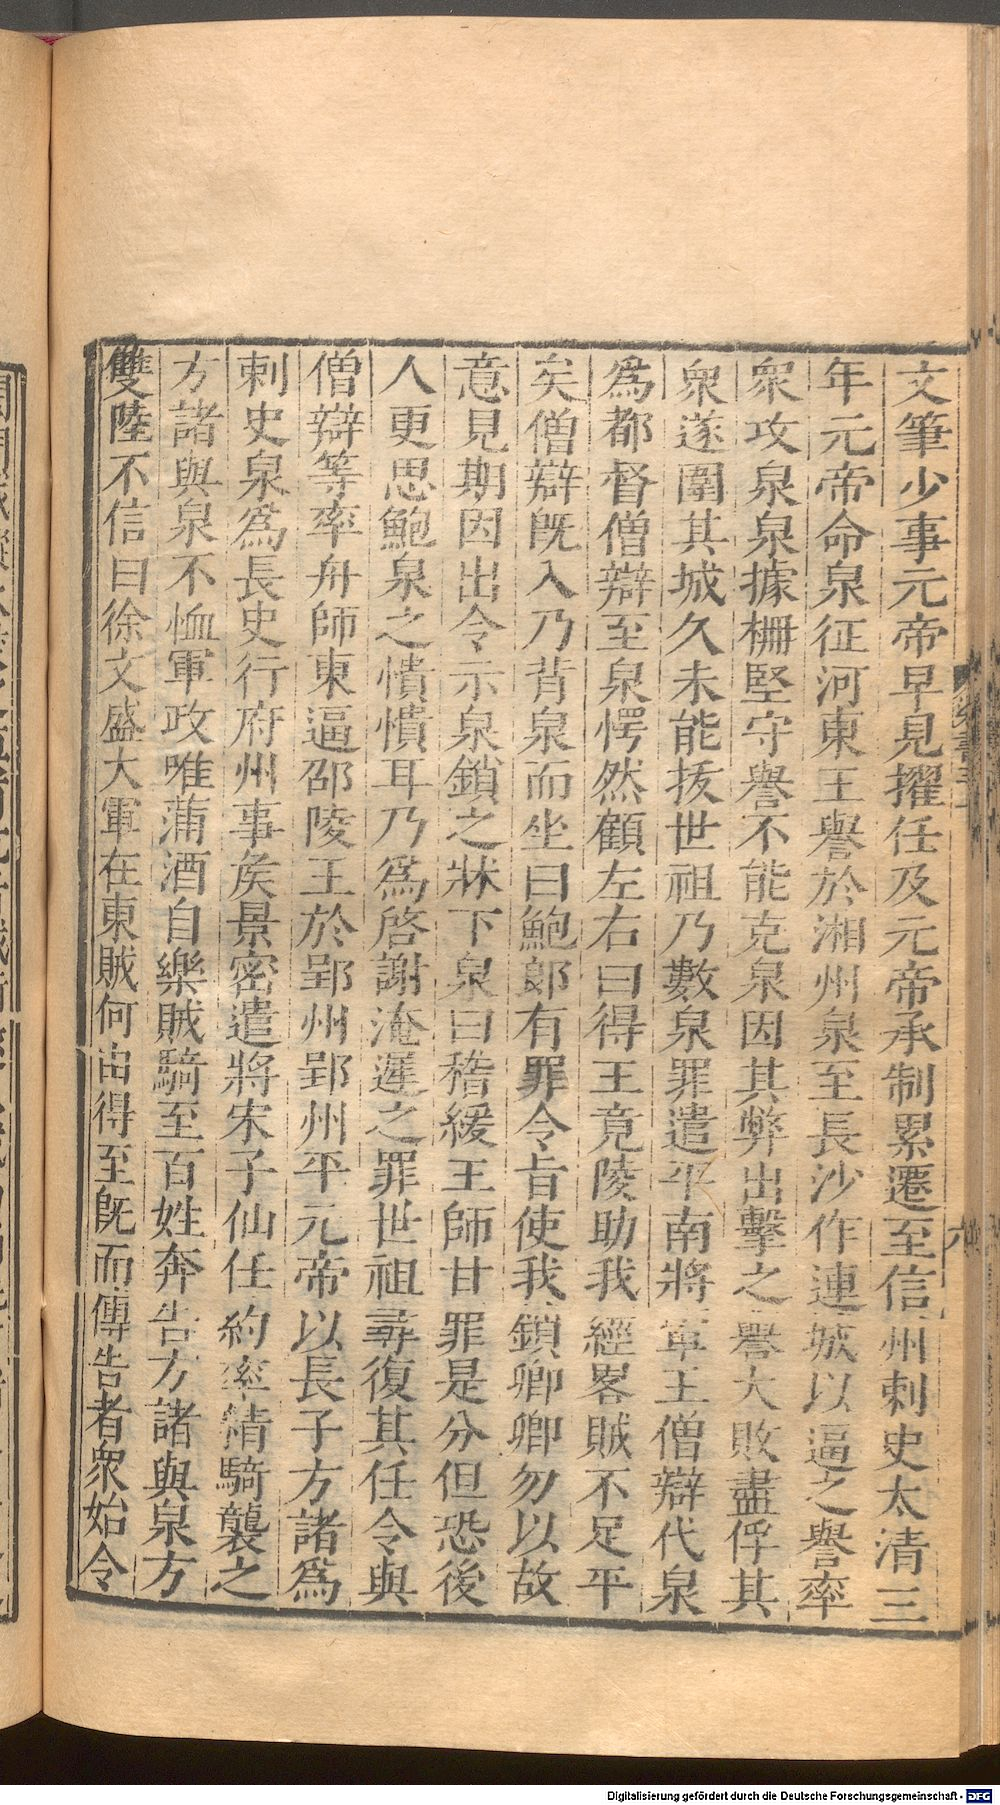 文筆少事元帝早見擢任及元帝承制累遷至信州刺史太清三
年元帝命泉征河東王譽於湘州泉至長沙作連城以逼之譽率
衆攻泉泉據柵堅守譽不能克泉因其弊出擊之譽大敗盡俘其
衆遂圍其城久未能拔世祖乃數泉罪遣平南將軍王僧辯代泉
爲都督僧辯至泉愕然顧左右曰得王竟陵助我經畧賊不足平
矣僧辯旣入乃背泉而坐曰鮑郞有罪令旨使我鎖卿卿勿以故
意見期因出令示泉鎖之牀下泉曰稽緩王師甘罪是分但恐後
人更思鮑泉之憒憒耳乃爲啓謝淹遲之罪世祖尋復其任令與
僧辯等率舟師東逼邵陵王於郢州郢州平元帝以長子方諸爲
刺史泉爲長史行府州事矦景密遣將宋子仙任約率精騎襲之
方諸與泉不恤軍政唯蒲酒自樂賊騎至百姓奔告方諸與泉方
雙陸不信曰徐文盛大軍在東賊何由得至旣而傳告者衆始令
六
Digitalisierung gefördert durch die Deutsche Forschungsgemeinschaft - DFG